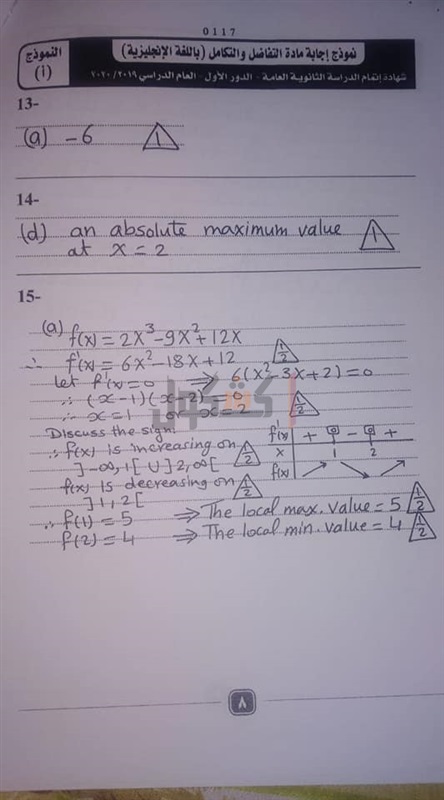 0117
نموذج إجابة مادة التفاضل والتكامل (باللغة الإنجليزية)
النموذج
(أ)
شهادة إتمام الدراسة الثانوية العامة - الدور الأول - العام الدراسي ٢٠١٩/٢٠٢٠
13-
(a) -6 1
14-
(d) an absolute maximum value 1
at x = 2
15-
(a) f(x) = 2x³-9x²+12x
∴ f'(x) = 6x²-18x+12 1/2
let f'(x)=0 ⇒ 6(x²-3x+2)=0
∴ (x-1)(x-2)=0
∴ x=1 or x=2 1/2
Discuss the sign:
∴ f(x) is increasing on 1/2
]-∞,1[ ∪ ]2,∞[
f(x) is decreasing on 1/2
]1,2[
f'(x) + 0 - 0 +
x 1 2
f(x) ↗ ↘ ↗
∴ f(1) = 5 ⇒ The local max. value = 5 1/2
f(2) = 4 ⇒ The local min. value = 4 1/2
٨